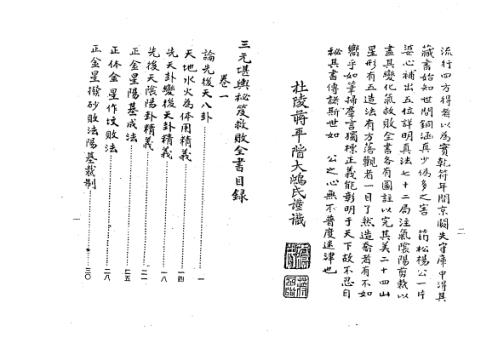 流行四方得者以為寶乾符年間京闕失守庫中得其
藏書始知世間銅函真少偽多之害 筠松楊公一片
婆心補出五位詳明真法七十二局注氣陰陽剪裁以
盡其變化氣救敗全書各有圖註以完其美二十四山
星形有五造法有方落觀者一目了然造者若有不如
嚮乎如筆掃羣言獨標正義能彰明于天下故不忍自
秘其書傳諸斯世如 公之心無不普度迷津也
杜陵蔣平階大鴻氏謹識
三元堪輿秘笈救敗全書目录
卷一
論先後天八卦 一
天地水火為体用精義 四
先天卦變後天卦精義 八
先後天陰陽卦精義 一八
正金星陽基成法 二一
正体金星作坟敗法 二五
正金星撥砂敗法陽基裁制 二八
三〇